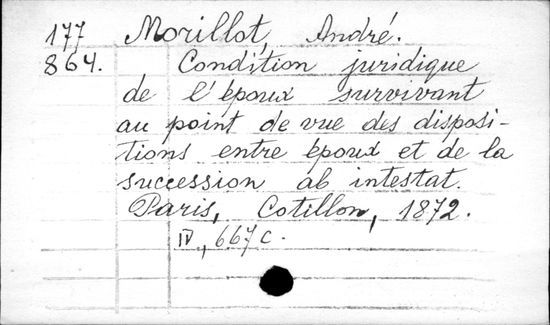 177 Morillot, André.
864. Condition juridique
de l'époux survivant
au point de vue des disposi-
tions entre époux et de la
succession ab intestat.
Paris, Cotillon, 1872.
IV., 667 c.